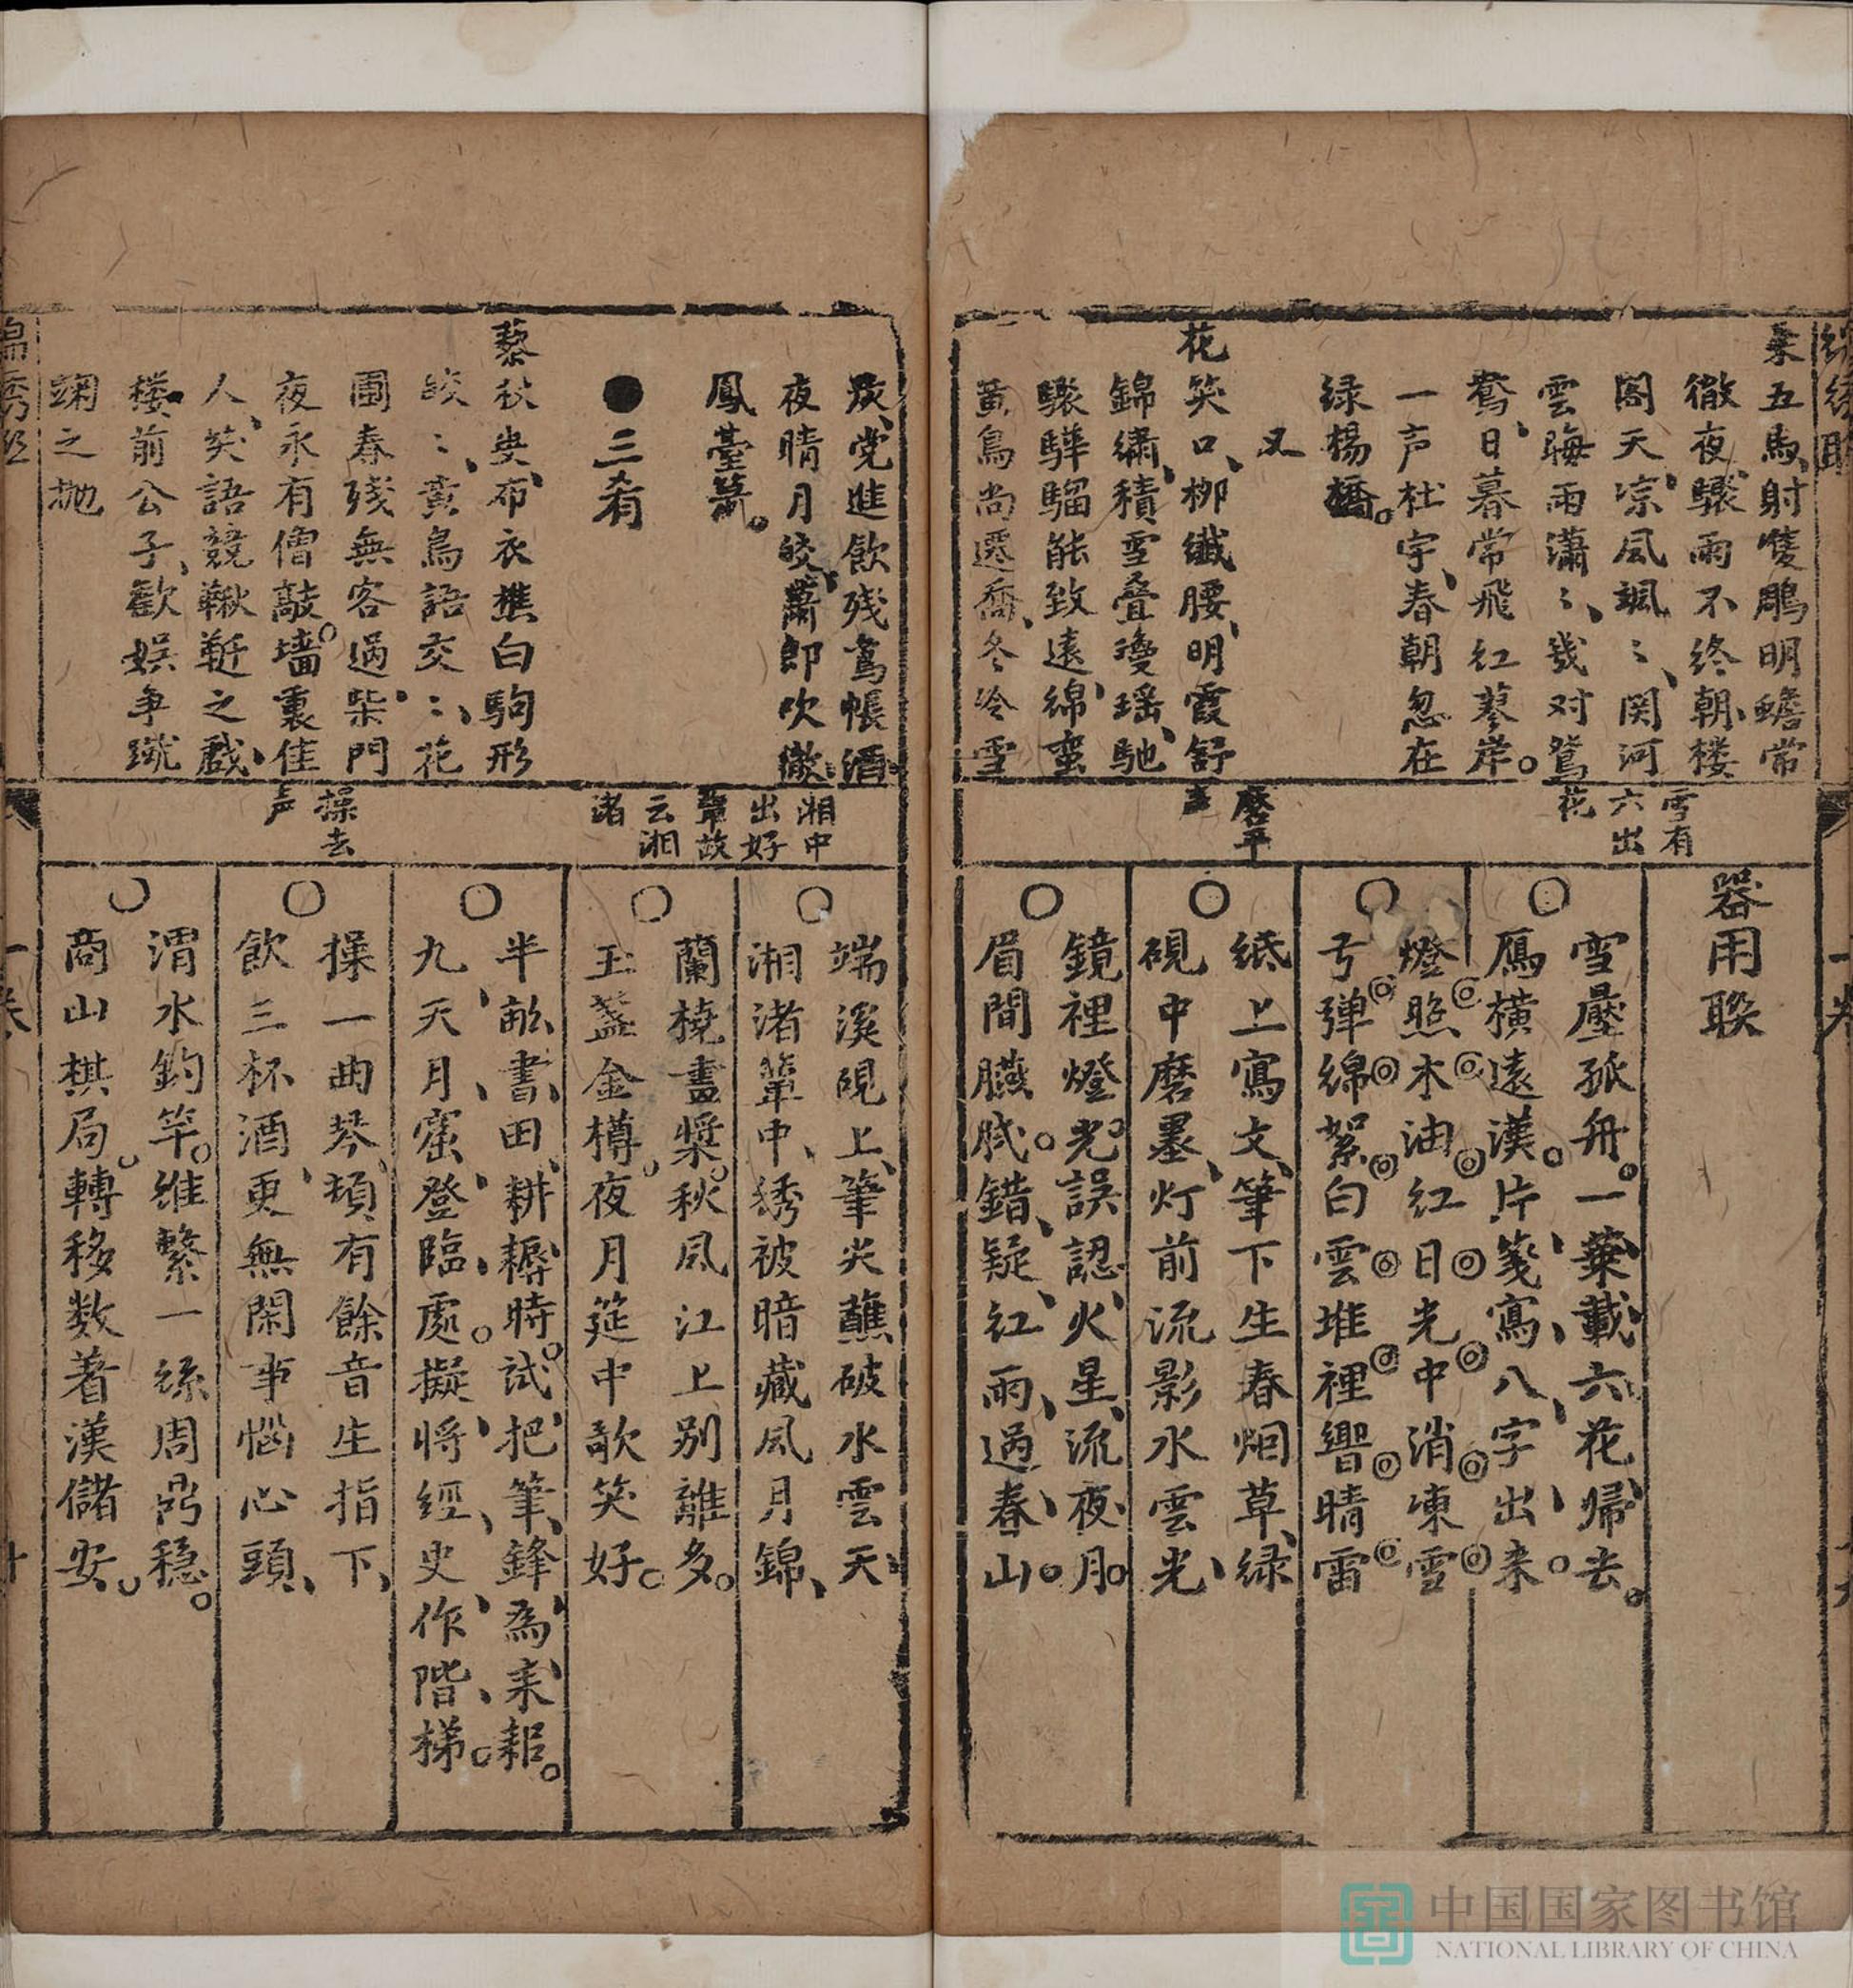 乗五馬射雙鵰明蟾常
徹夜驟雨不終朝楼
閣天凉风颯〻関河
雲晦雨瀟〻幾对鴛
鴦日暮常飛红蓼岸
一声杜宇春朝忽在
绿楊橋
又
花笑口栁纖腰明霞舒
錦繡積雪叠瓊瑶馳
驟驊騮能致遠綿蛮
黄鳥尚遷喬冬冷雪
雪有
六出
花
磨平
声
器用联
雪壓孤舟一葉載六花歸去
鴈横遠漢片箋寫八字出来
燈照木油红日光中消凍雪
弓弹綿絮白雲堆裡響晴雷
紙上寫文筆下生春烟草绿
硯中磨墨灯前流影水雲光
鏡裡燈光誤認火星流夜月
眉間臙脂錯疑红雨過春山
党進飲残鴛帳酒
夜晴月皎蕭郎吠徹
鳳䑓簫
●三肴
藜秋叟布衣樵白駒形
皎〻黄鳥語交〻花
圃春残無客過柴門
夜永有僧敲墻裏佳
人笑語競鞦韆之戱
楼前公子歡娱争蹴
踘之抛
湘中
出好
簟故
云湘
渚
操去
声
端溪硯上筆尖蘸破水雲天
湘渚簟中绣被暗藏风月錦
蘭橈畫槳秋风江上别離多
玉盞金樽夜月筵中歌笑好
半畝書田耕耨時試把筆鋒為耒耜
九天月窟登臨處擬将經史作階梯
操一曲琴頓有餘音生指下
飲三杯酒更無閑事惱心頭
渭水釣竿維繫一絲周鼎穏
商山棋局轉移数著漢儲安
中国国家图书馆
NATIONAL LIBRARY OF CHINA